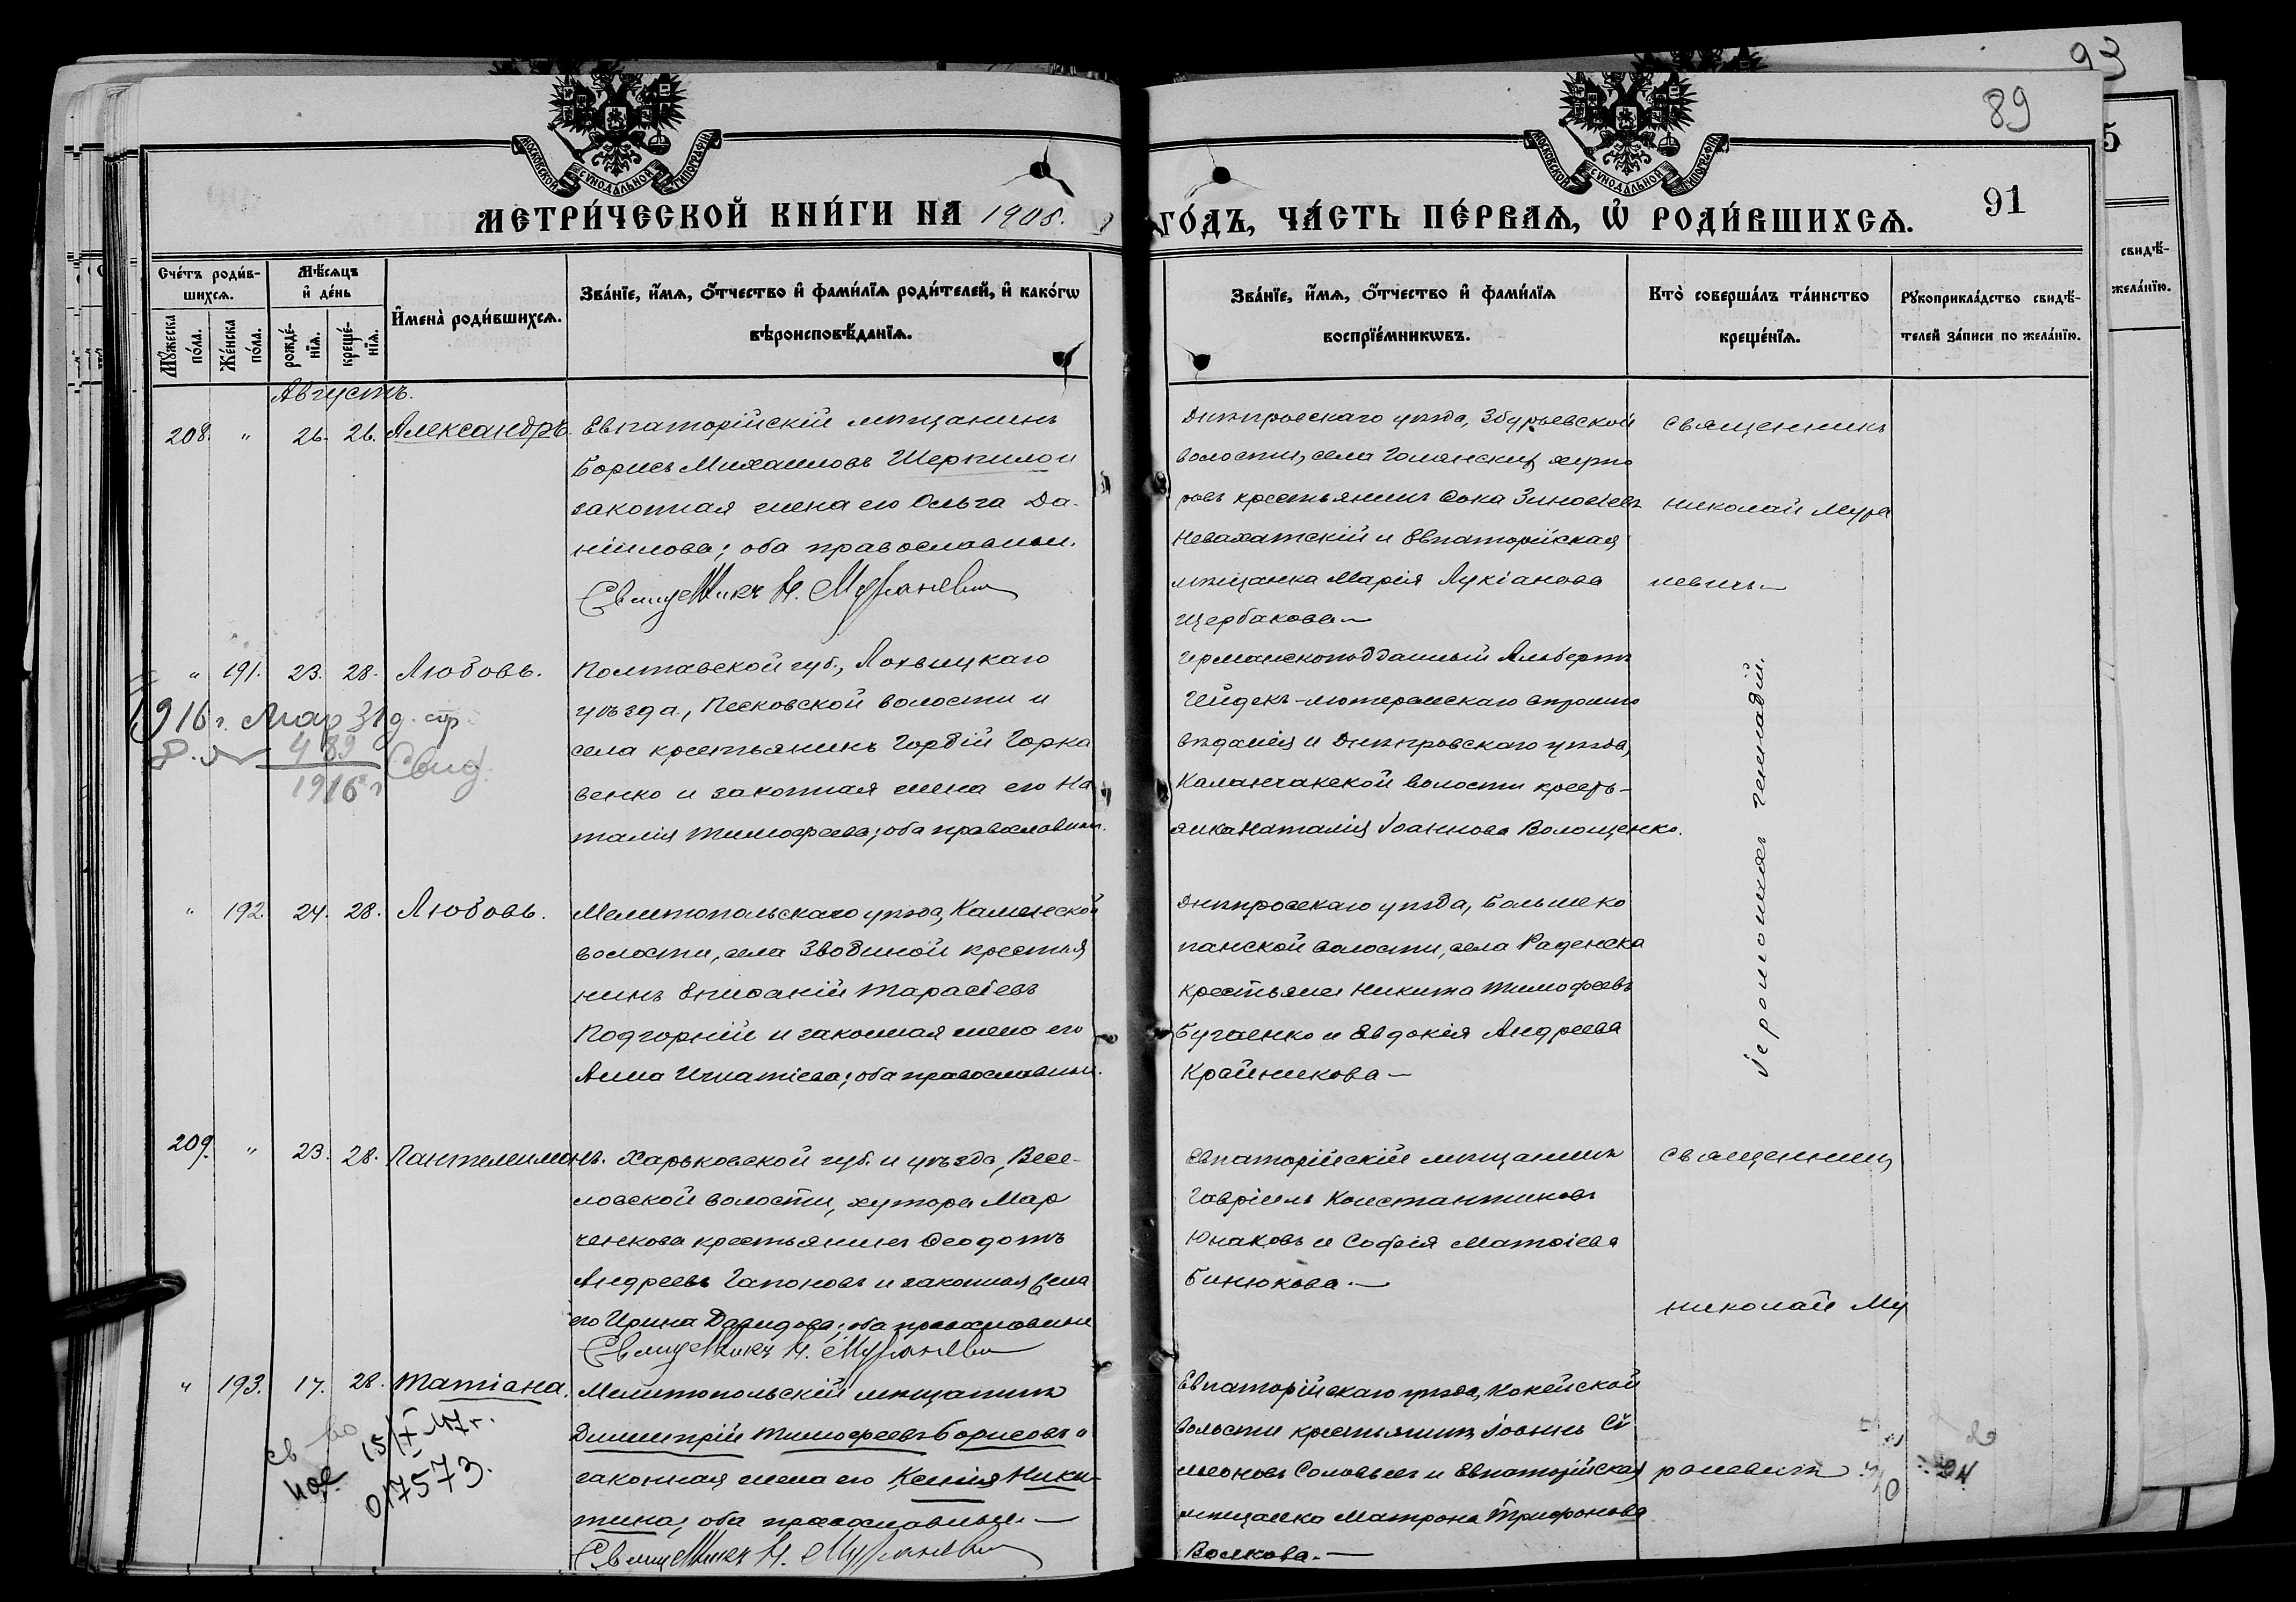 93
89
МОСКОВСКОЙ СѴНОДАЛЬНОЙ ТИПОГРАФІИ
МОСКОВСКОЙ СѴНОДАЛЬНОЙ ТИПОГРАФІИ
МЕТРИ́ЧЕСКОЙ КНИ́ГИ НА 1908.
ГО́ДЪ, ЧА́СТЬ ПЕ́РВАѦ, Ѡ҆ РОДИ́ВШИХСѦ.
91
5
Сче́тъ роди́в-
шихсѧ.
Мꙋ́жеска по́ла.
Же́нска по́ла.
Мѣ́сѧцъ
и҆ де́нь
рожде́-
нїѧ.
креще́-
нїѧ.
И҆мена̀ роди́вшихсѧ.
Зва́нїе, и҆́мѧ, ѻ҆́тчество и҆ фами́лїѧ роди́телей, и҆ како́гѡ
вѣроисповѣ́данїѧ.
Зва́нїе, и҆́мѧ, ѻ҆́тчество и҆ фами́лїѧ
воспрїе́мникѡвъ.
Кто̀ соверша́лъ та́инство
креще́нїѧ.
Рꙋкоприкла́дство свидѣ́-
телей за́писи по жела́нїю.
свидѣ́-
жела́нїю.
Августъ.
208. " 26. 26. Александръ.
Евпаторійскій мѣщанинъ
Борисъ Михаиловъ Шерпило и
законная жена его Ольга Да-
ніилова; оба православные.
Священникъ Н. Мураневич
Днѣпровскаго уѣзда, Збурьевской
волости, села Голянских хуто
ровъ крестьянинъ Ѳока Зиновіевъ
Невахатскій и Евпаторійская
мѣщанка Марія Лукіанова
Щербакова
Священникъ
Николай Мура
невичъ
" 191. 23. 28. Любовь.
1916 г. Мар 31 д.
489
1916 г
Свид.
Полтавской губ., Лохвицкаго
уѣзда, Песковской волости и
села крестьянинъ Гордій Горка
венко и законная жена его На
талія Тимоѳеева; оба православные.
Германскоподданный Альбертъ
Гейдекъ - лютеранскаго вѣроиспо
вѣданія и Днѣпровскаго уѣзда,
Каланчакской волости кресть-
янка Наталія Іоаннова Волощенко.
Іеромонахъ Геннадій.
" 192. 24. 28. Любовь.
Мелитопольскаго уѣзда, Каменской
волости, села Зводиной крестья
нинъ Епифаній Тарасіевъ
Подгорній и законная жена его
Анна Игнатіева; оба православные.
Днѣпровскаго уѣзда, Больше ко
панской волости, села Раденска
крестьяне Никита Тимофеевъ
Бугаенко и Евдокія Андреева
Крайникова
209. " 23. 28. Пантелеимонъ.
Харьковской губ. и уѣзда, Весе-
ловской волости, хутора Мар
ченкова крестьянинъ Ѳеодотъ
Андреевъ Гапоновъ и законная жена
его Ирина Давидова; оба православные
Священникъ Н. Мураневич
Евпаторійскій мѣщанинъ
Гавріилъ Константиновъ
Юнаковъ и Софія Матѳіева
Бинюкова.
Священникъ
Николай Му
" 193. 17. 28. Татіана.
св-во
15/X 47 г.
017573.
Мелитопольскій мѣщанинъ
Димитрій Тимоѳеевъ Борисовъ и
законная жена его Ксенія Ники-
тина, оба православные.
Священникъ Н. Мураневич
Евпаторійскаго уѣзда, Кокейской
волости крестьянинъ Іоаннъ Си
меоновъ Соловьевъ и Евпаторійская
мѣщанка Матрона Трифонова
Волкова.
раневичъ